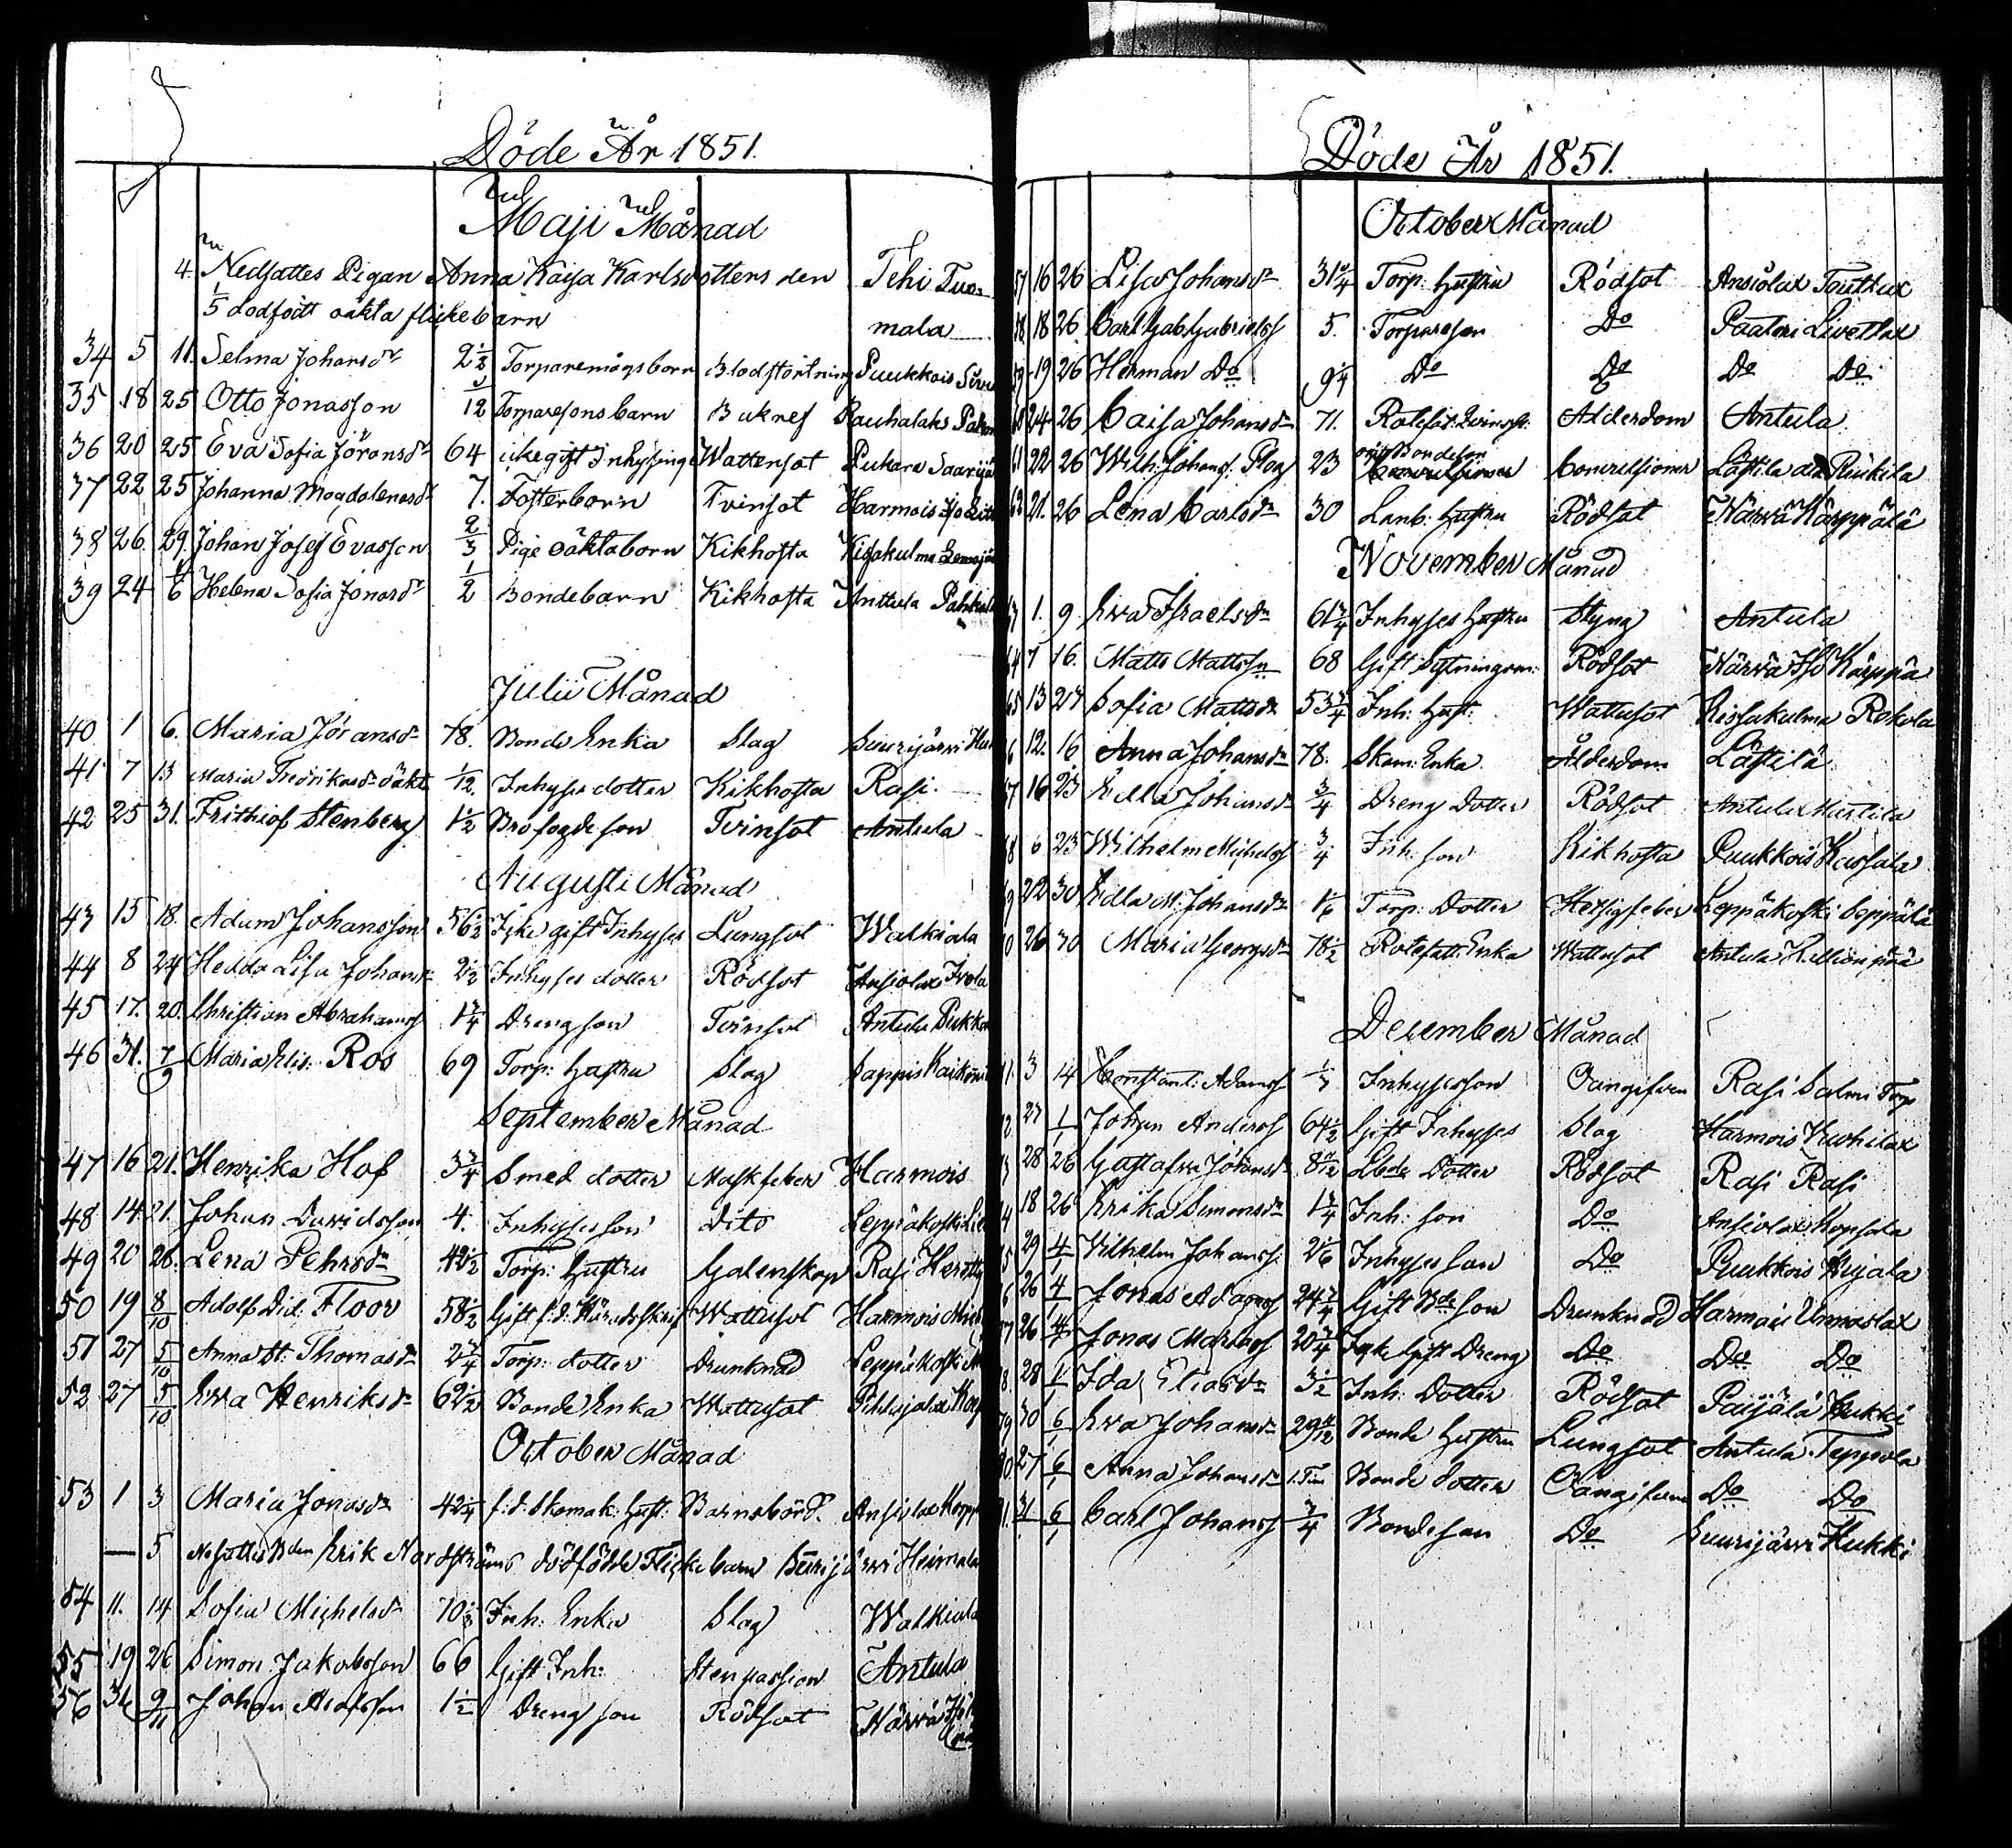 Döde År 1851.
Maji Månad
4. Nedsattes Pigan Anna Kaisa Karlsdotters den Tehi Tuo-
5 dödfödt oäkta flickebarn mala
34 5 11. Selma Johansdr 2 1/2 Torparemågsbarn Blodstörtning Puukkois
35 18 25 Otto Jonasson 12 Torparesons barn Bukref Rauhalaks
36 20 25 Eva Sofia Jöransdr 64 icke gift Inhysinge Wattensot Pukara Saarijä
37 22 25 Johanna Magdalenasdr 7. Fosterbarn Tvinsot Harmois
38 26. 29. Johan Josef Evasson 2/3 Pige oäktaborn Kikhosta Kissakulma
39 24 Helena Sofia Jonasdr 1/2 Bondebarn Kikhosta Anttula
Julii Månad
40 1 6. Maria Jöransdr 78. Bonde Enka Slag Suurijärvi
41 7 13 Maria Fredrikasdr oäkta 1/12 Inhyses dotter Kikhosta Rasi
42 25 31. Frithiof Stenberg 1 1/2 Brofogde son Tvinsot Antula
Augusti Månad
43 15 18. Adam Johansson 56 1/2 Icke gift Inhyses Lungsot Walkiala
44 8 24 Hedda Lisa Johansdr 2 1/2 Inhyses dotter Rödsot Ansiolax
45 17. 20. Christian Abrahamss 1 3/4 Dreng son Tvinsot Antula Pukka
46 31. 7/9 Maria Elis: Ros 69 Torp: Hustru Slag Pappis
September Månad
47 16 21. Henrika Hof 3 3/4 Smed dotter Maskfeber Harmois
48 14 21. Johan Davidsson 4. Inhyses son Dito Leppäkoski
49 20 28. Lena Pehrsdr 42 1/2 Torp: Hustru Galenskap Rasi
50 19 8/10 Adolf Did: Floor 58 1/2 Gift f.d. Häradsskrif Wattusot Harmois
51 27 5/10 Anna St: Thomasdr 2 3/4 Torp: dotter Drunknad Leppäkoski
52 27 5/10 Ewa Henriksdr 62 1/2 Bonde Enka Wattusot Pihlajalax
October Månad
53 1 3 Maria Jonasdr 42 1/4 f:d: Skomak: Hust: Barnsbörd. Ansiolax
— 5 Nesattes Bden Erik Nordströms dödfödde Flickebarn Suurijärwi Heimala
54 11. 14 Sofia Michelsdr 70 1/2 Inh: Enka Slag Walkiala
55 19 26 Simon Jakobsson 66 Gift Inh: Stenpassion Antula
56 9/11 Johan 1 1/2 Dreng son Rödsot Närvä
Döde År 1851.
October Månad
16 26 Lisa Johansdr 31 Torp: Hustru Rödsot Ansiolax Touttux
18 26. Carl Gab: Gabrielss 5. Torpareson Do Paatari Livettlax
19 26 Herman Do 9/4 Do Do Do Do
24 26 Caisa Johansdr 71. Rotefat: Qvinsp: Ålderdom Antula
22 26 Wilh: Johanss. Plog 23 Bondeson Conwulsioner Lästilä
21. 26 Lena Carlsdr 30 Lanb: Hustru Rödsot Närvä Käppälä
November Månad
1. 9 Ewa Israelsdr 61 3/4 Inhyses Hustru Styng Antula
7 16. Matts Mattssn 68 Gift Sytningsm: Rödsot Närvä
13 23 Sofia Mattsdr 53 3/4 Inh: Hust: Wattusot Kissakulma Rokola
12. 16 Anna Johansdr 78. Skom: Enka Ålderdom Lästilä
16 23 Edla Johansdr 3/4 Dreng Dotter Rödsot Antula
6 23 Wilhelm Michelss 3/4 Inh: son Kikhosta Puukkois
22 30 Edla M: Johansdr 1/6 Torp: Dotter Hetsigfeber Leppäkoski Seppälä
26 30 Maria Georgsdr 78 1/2 Rotefatt: Enka Wattusot Antula
December Månad
3 14 Constant: Adamss Inhysesson Oangifven Rasi Salmi Torp
27 1/1 Johan Anderss 64 1/2 Gift Inhyses Slag Harmois
28 26 Gustafva Johansdr 8 Dotter Rödsot Rasi Rasi
18 26 Erika Simonsdr 1 3/4 Inh: son Do Ansiolax
29 4/1 Wilhelm Johanss: 2 1/6 Inhyses son Do Puukkois Kujala
26 4/1 Jonas Adamss 24 3/4 Gift Bde son Drunknad Harmois Unnaslax
26 4/1 Jonas 20 3/4 Icke Gift Dreng Do Do Do
28 1/1 Ida Eliasdr 3 1/2 Inh: Dotter Rödsot Paijälä Hukki
30 6/1 Ewa Johansdr 29 Bonde Hustru Lungsot Antula Teppola
27 6/1 Anna Johansdr 1. Tim Bonde dotter Oangifven Do Do
31 6/1 Carl Johanss 3/4 Bondeson Do Suurijärvi Hukki